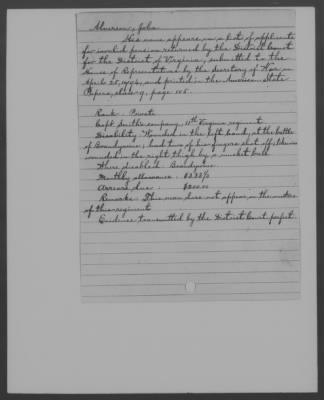 His name appears in a list of applicants
for invalid pension returned by the District Court
for the District of Virginia, submitted to the
House of Representatives by the Secretary of War on
April 25, 1794, and printed in the American State
Papers, class 9, page 105.
Rank: Private
Capt Smith's company, 11th Virginia regiment
Disability: Wounded in the left hand, at the battle
of Brandywine; had two of his fingers shot off; likewise
wounded in the right thigh by a musket ball
Where disabled: Brandywine
Monthly allowance:
Arrears due: $200.00
Remarks: This man does not appear on the musters
of this regiment
Evidence transmitted by the District Court perfect.